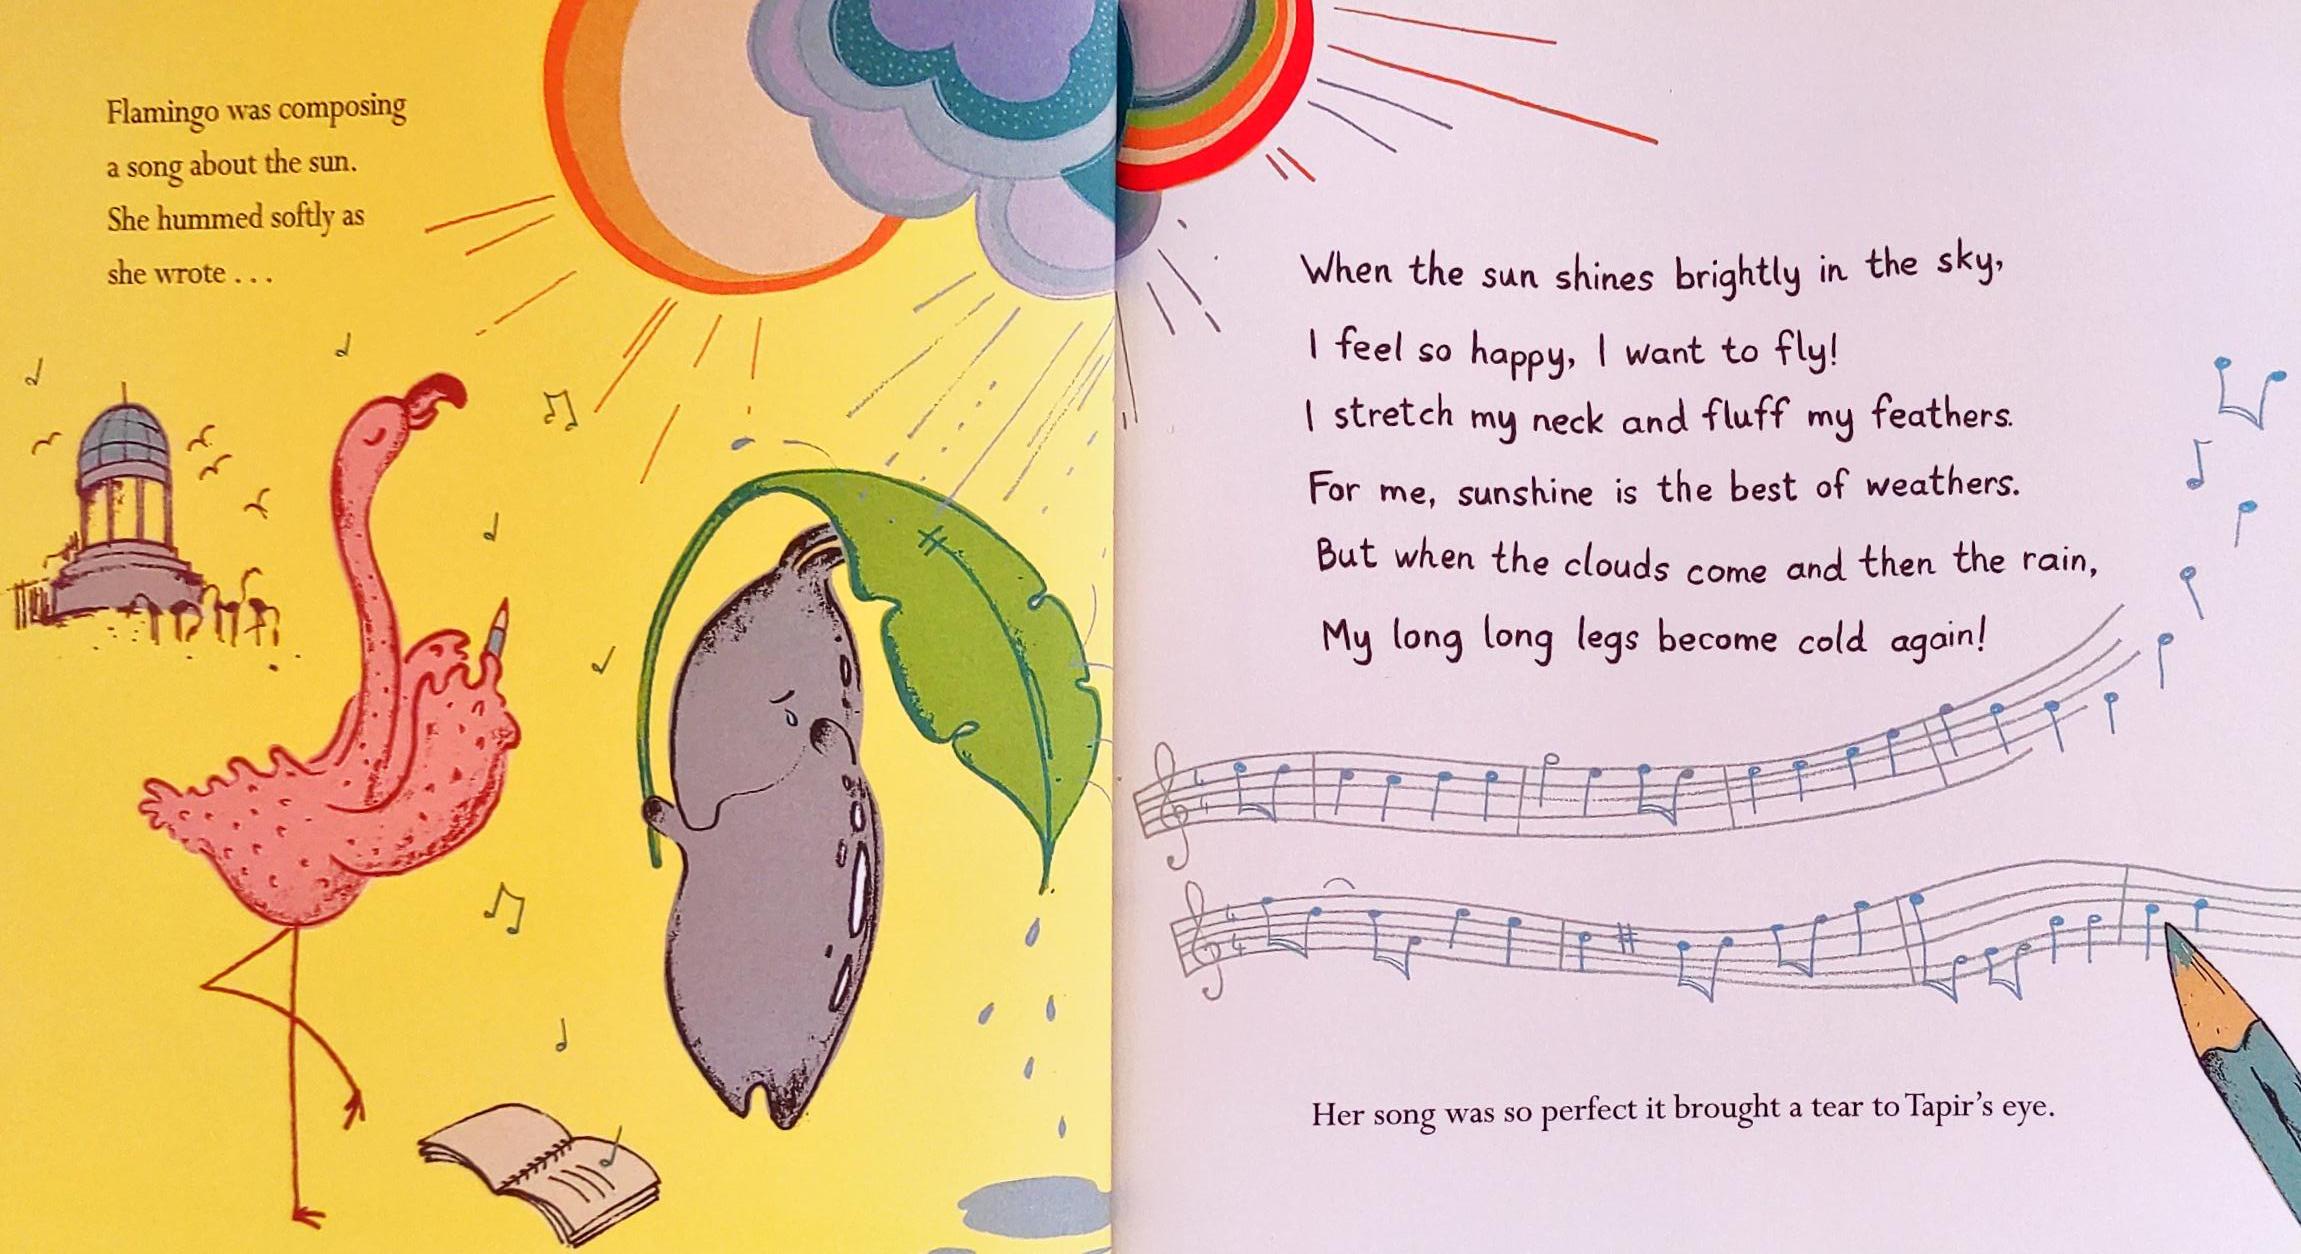 Flamingo was composing
a song about the sun.
She hummed softly as
she wrote . . .
When the sun shines brightly in the sky,
I feel so happy, I want to fly!
I stretch my neck and fluff my feathers.
For me, sunshine is the best of weathers.
But when the clouds come and then the rain,
My long long legs become cold again!
Her song was so perfect it brought a tear to Tapir's eye.